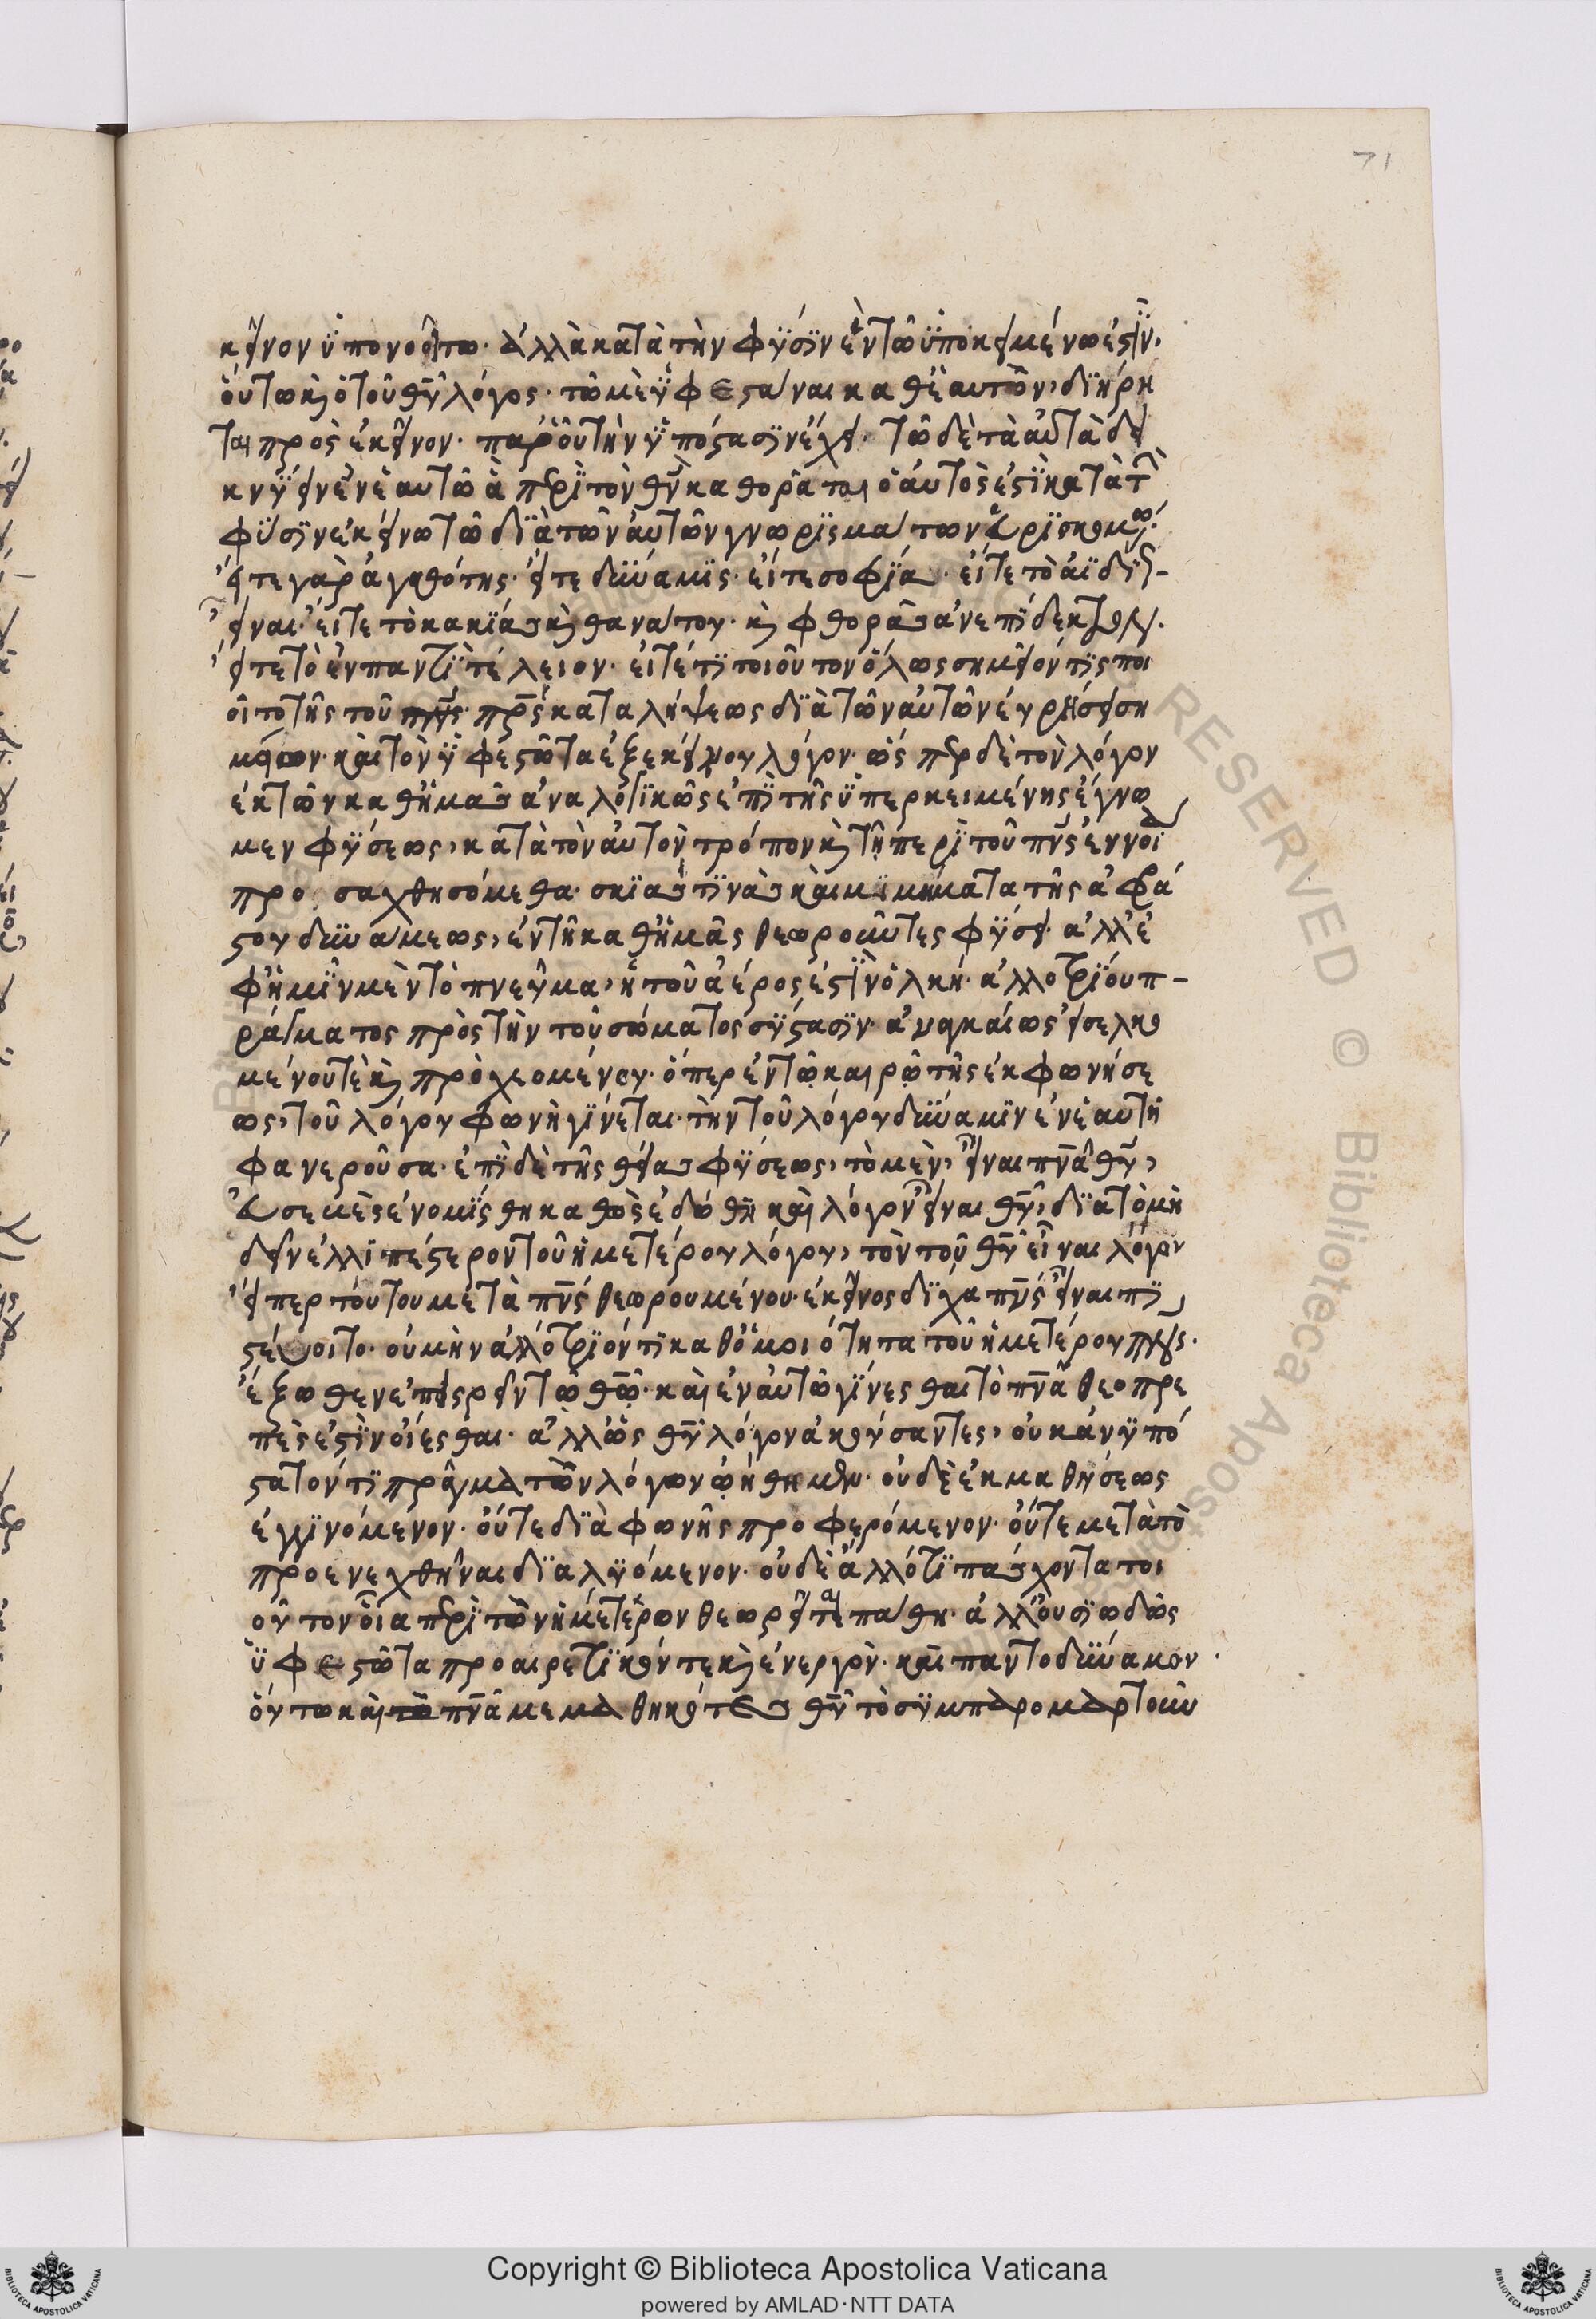 71
κεῖνον ὑπονοείτω· ἀλλὰ κατὰ τὴν φύσιν ἐν τῶ ὑποκειμένω ἐστὶν,
οὕτω κ(αὶ) ὁ τοῦ θῡ λόγος· τῶ μὲν ὑφεστάναι καθ' ἑαυτὸν, διήρη
ται πρὸς ἐκεῖνον· παρ' οὗ τὴν ὑπόστασιν ἔχει· τῶ δὲ τὰ αὐτὰ δει
κνύειν ἐν ἑαυτῶ ἃ περὶ τὸν θν̄ καθορᾶται ὁ αὐτὸς ἐστὶ κατὰ τ(ὴν)
φύσιν ἐκείνω τῶ διὰ τῶν αὐτῶν γνωρισμάτων εὑρισκομένω·
εἴτε γὰρ ἀγαθότης· εἴτε δύναμις· εἴτε σοφία· εἴτε τὸ ἀϊδί(ως)
εἶναι· εἴτε τὸ κακίας κ(αὶ) θανάτου· κ(αὶ) φθορᾶς ἀνεπίδεκτον·
εἴτε τὸ ἐν παντὶ τέλειον· εἴτέ τι τοιοῦτον ὅλως σημεῖόν τις ποι
οῖτο τῆς τοῦ πρ̄ς καταλήψεως διὰ τῶν αὐτῶν εὑρήσει ση
μείων· καὶ τὸν ὑφεστῶτα ἐξ ἐκείνου λόγον· ὥσπερ δὲ τὸν λόγον
ἐκ τῶν καθ' ἡμᾶς ἀναλογικῶς ἐπὶ τῆς ὑπερκειμένης ἔγνω
μεν φύσεως, κατὰ τὸν αὐτὸν τρόπον κ(αὶ) τῆ περὶ τοῦ πν̄ς ἐννοία
προσαχθησόμεθα· σκιάς τινὰς καὶ μιμήματα τῆς ἀφρά
στου δυνάμεως, ἐν τῆ καθ' ἡμᾶς θεωροῦντες φύσει· ἀλλ' ἐ
φ' ἡμῖν μὲν τὸ πνεῦμα, ἡ τοῦ ἀέρος ἐστὶν ὁλκή· ἀλλοτρίου π
ράγματος πρὸς τὴν τοῦ σώματος σύστασιν· ἀναγκαίως εἰσελκο
μένου τὲ κ(αὶ) πρὸχεομένου· ὅπερ ἐν τῶ καιρῶ τῆς ἐκφωνήσε
ως, τοῦ λόγου φωνὴ γίνεται· τὴν τοῦ λόγου δύναμιν ἐν ἑαυτῆ
φανεροῦσα· ἐπὶ δὲ τῆς θείας φύσεως, τὸ μὲν, εἶναι πν̄α θῡ,
εὐσεβὲς ἐνομίσθη καθὼς ἐδόθη καὶ λόγον εἶναι θῡ, διὰ τὸ μὴ
δεῖν ἐλλιπέστερον τοῦ ἡμετέρου λόγου, τὸν τοῦ θῡ εἶναι λόγον
εἴπερ τούτου μετὰ πν̄ς θεωρουμένου· ἐκεῖνος δίχα πν̄ς εἶναι πι
στεύοιτο· οὐ μὴν ἀλλότριόν τι καθ' ὁμοιότητα τοῦ ἡμετέρου πν̄ς·
ἔξωθεν ἐπεισρεῖν τῶ θῶ̄· καὶ ἐν αὐτῶ γίνεσθαι τὸ πν̄α θεοπρε
πὲς ἐστὶν οἴεσθαι· ἀλλ' ὡς θῡ λόγον ἀκούσαντες, οὐκ ἀνυπό
στατόν τι πρᾶγμα τὸν λόγον ὠήθημεν· οὐδὲ ἐκ μαθήσεως
ἐγγινόμενον· οὔτε διὰ φωνῆς προφερόμενον· οὔτε μετὰ τὸ
προενεχθῆναι διαλυόμενον· οὐδὲ ἄλλό τι πάσχοντα τοι
οῦτον οἷα περὶ τὸν ἡμέτερον θεωρεῖται πάθη· ἀλλ' οὐσιωδῶς
ὑφεστῶτα προαιρετικόν τε κ(αὶ) ἐνεργὸν· καὶ παντοδύναμον·
οὕτω καὶ πν̄α μεμαθηκότες θῡ τὸ συμπαρομαρτοῦν